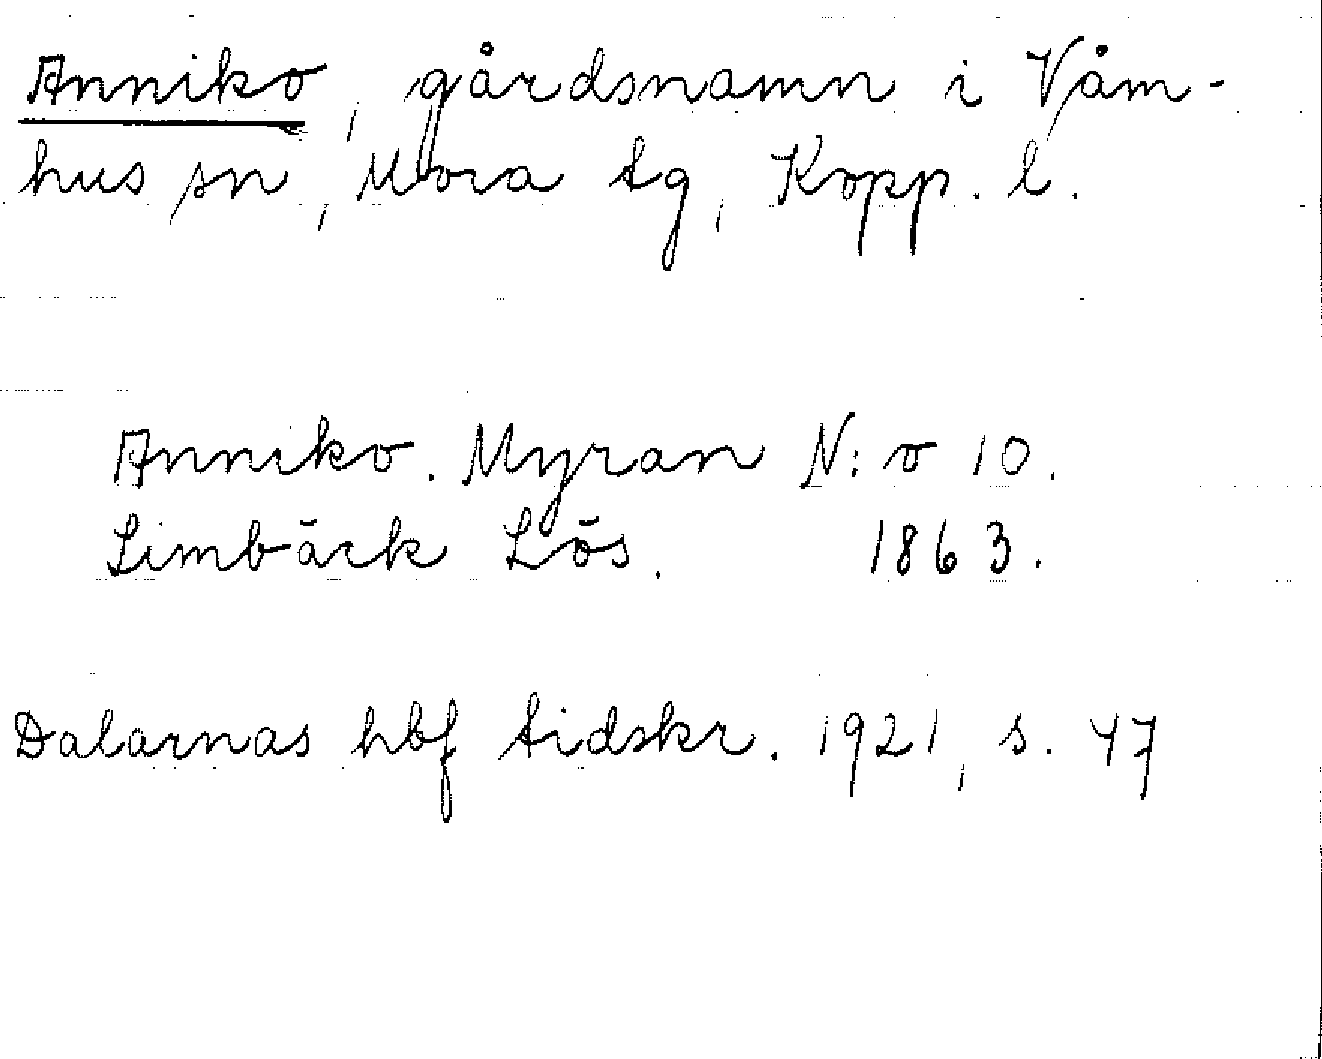 Anniko, gårdsnamn i Våm-
hus sn, Mora tg, Kopp. l.
Anniko. Myran N:o 10.
Limbäck Lös. 1863.
Dalarnas hbf tidskr. 1921, s. 47